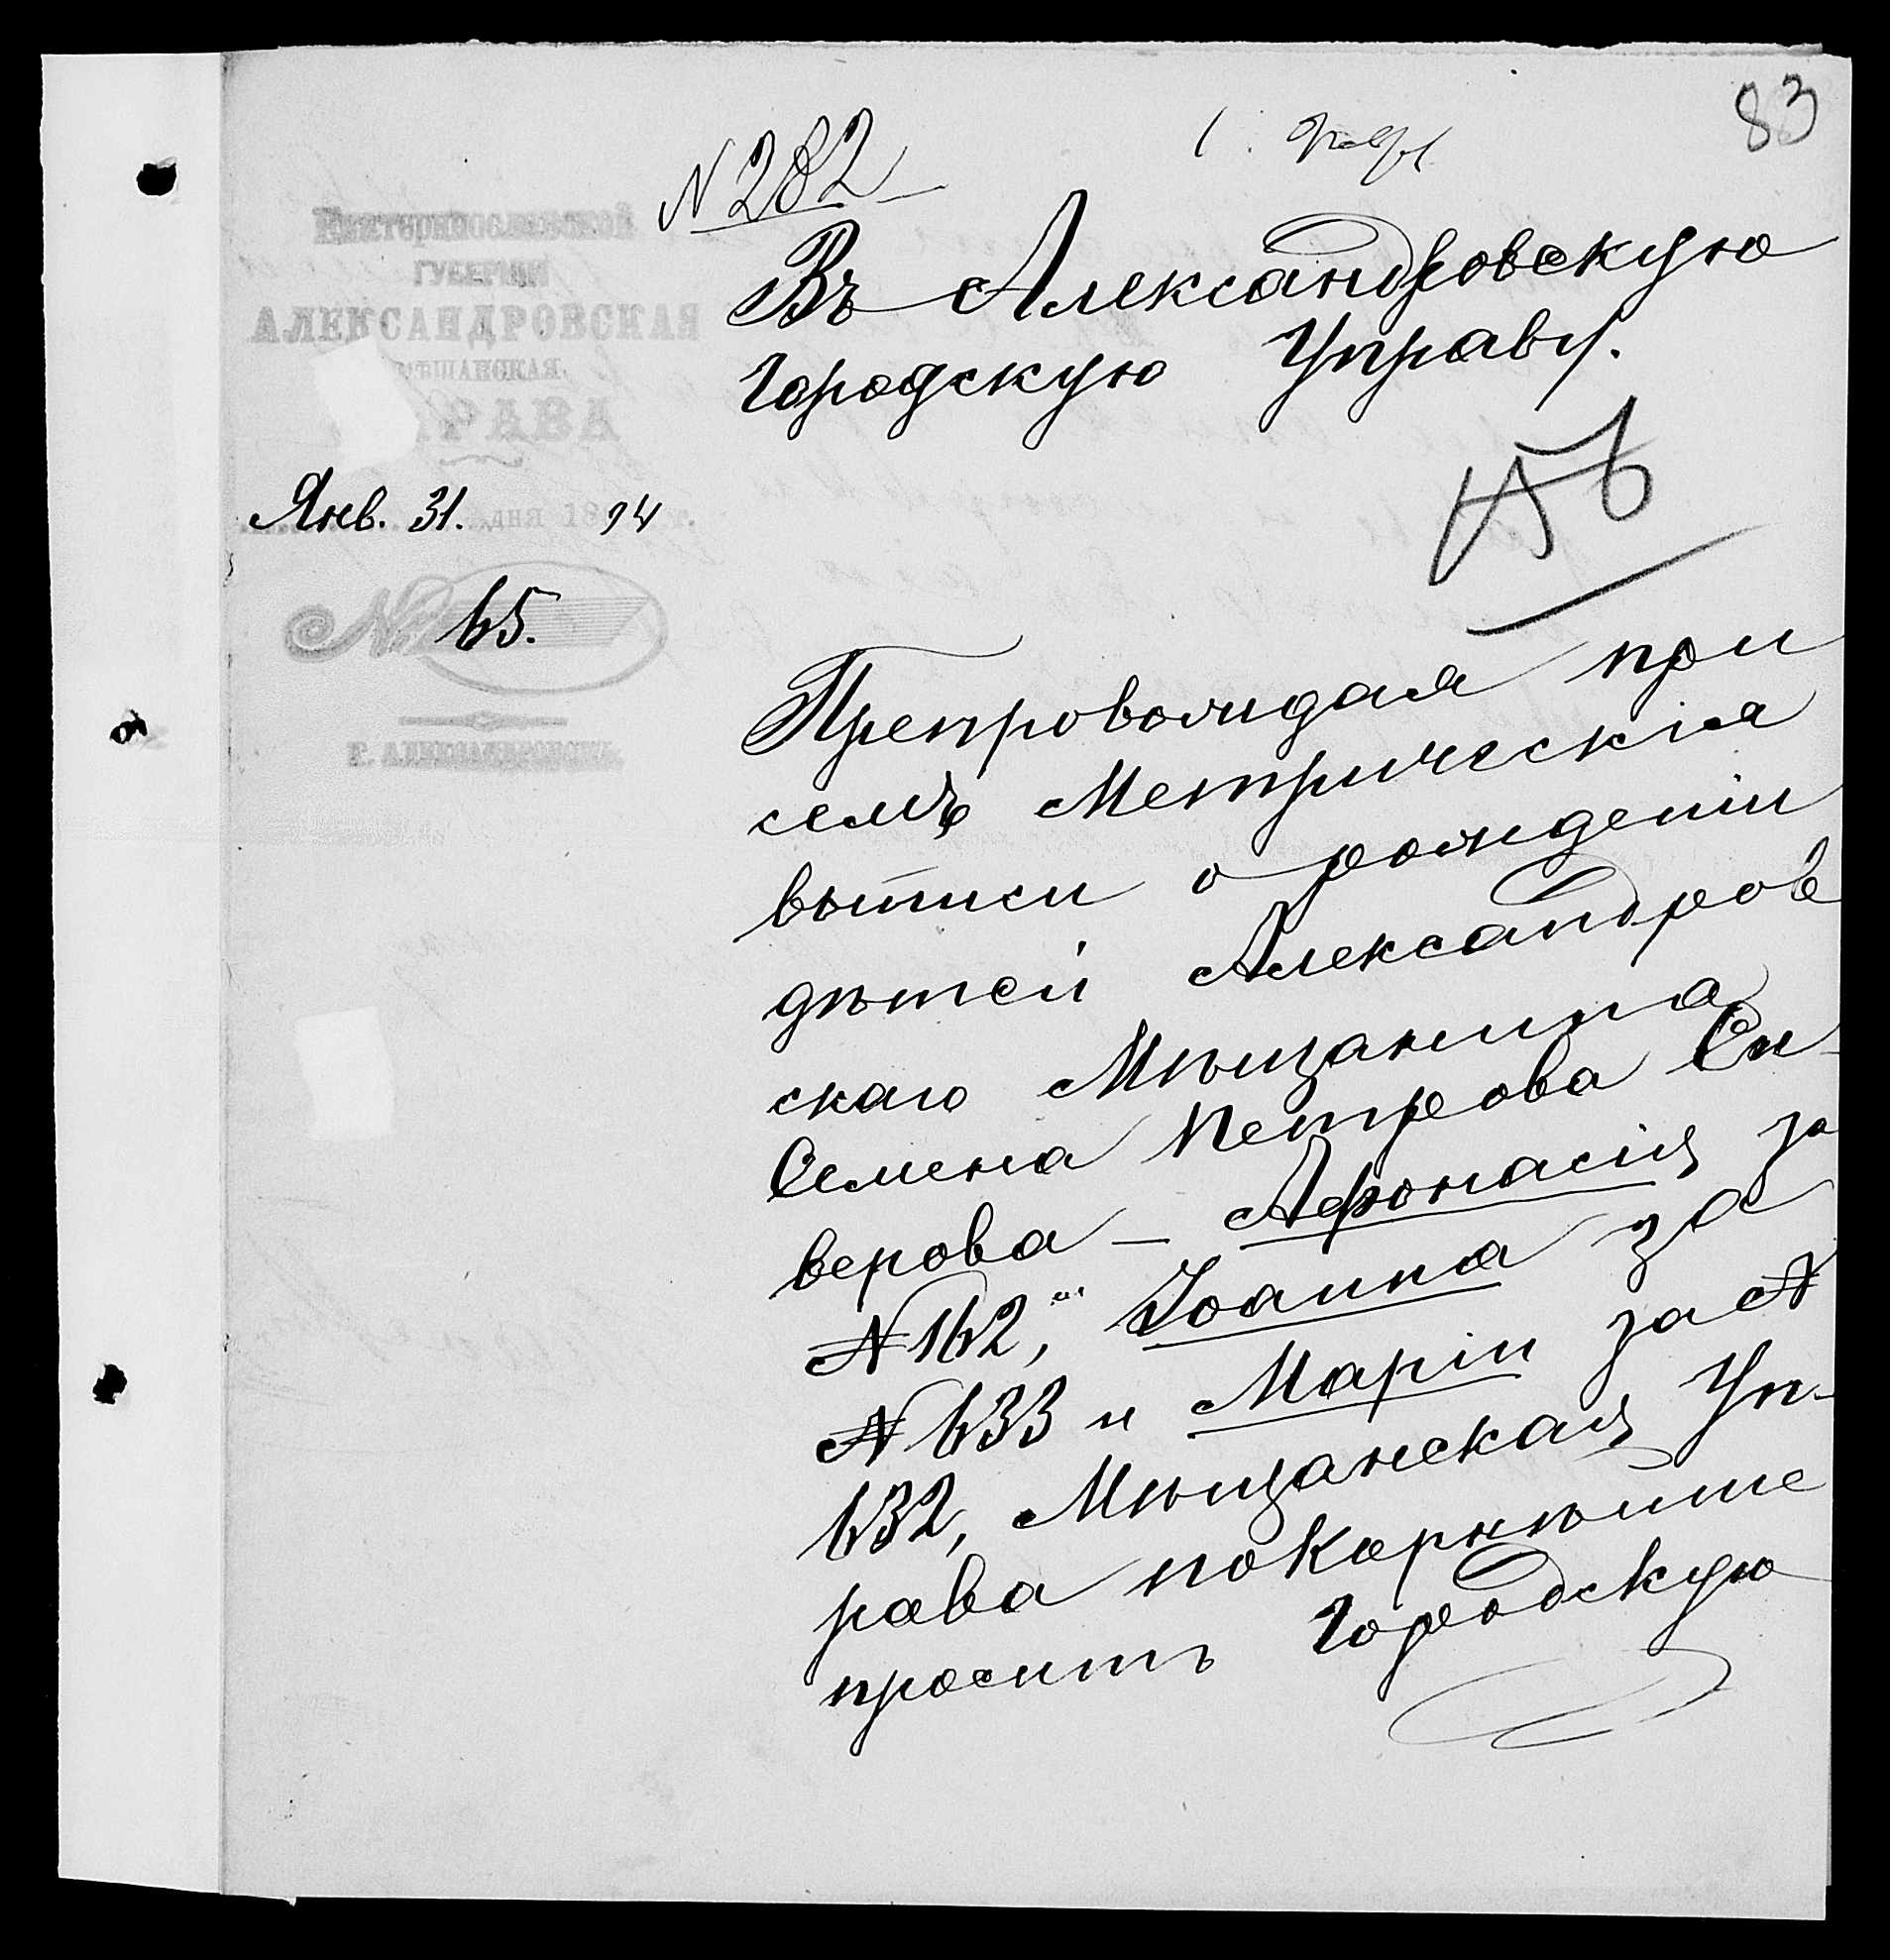 83
N 282
1 февр
Екатеринославской
ГУБЕРНІИ
АЛЕКСАНДРОВСКАЯ
МѢЩАНСКАЯ
УПРАВА
Янв. 31. дня 1894 г.
№ 65.
Г. АЛЕКСАНДРОВСКЪ.
Въ Александровскую
Городскую Управу.
Препровождая при
семъ Метрическія
выписи о рожденіи
дѣтей Александров
скаго Мѣщанина
Семена Петрова Си-
верова – Афонасія за
№ 162, Іоанна за
№ 633 и Маріи за №
632, Мѣщанская Уп-
рава покорнѣйше
проситъ Городскую